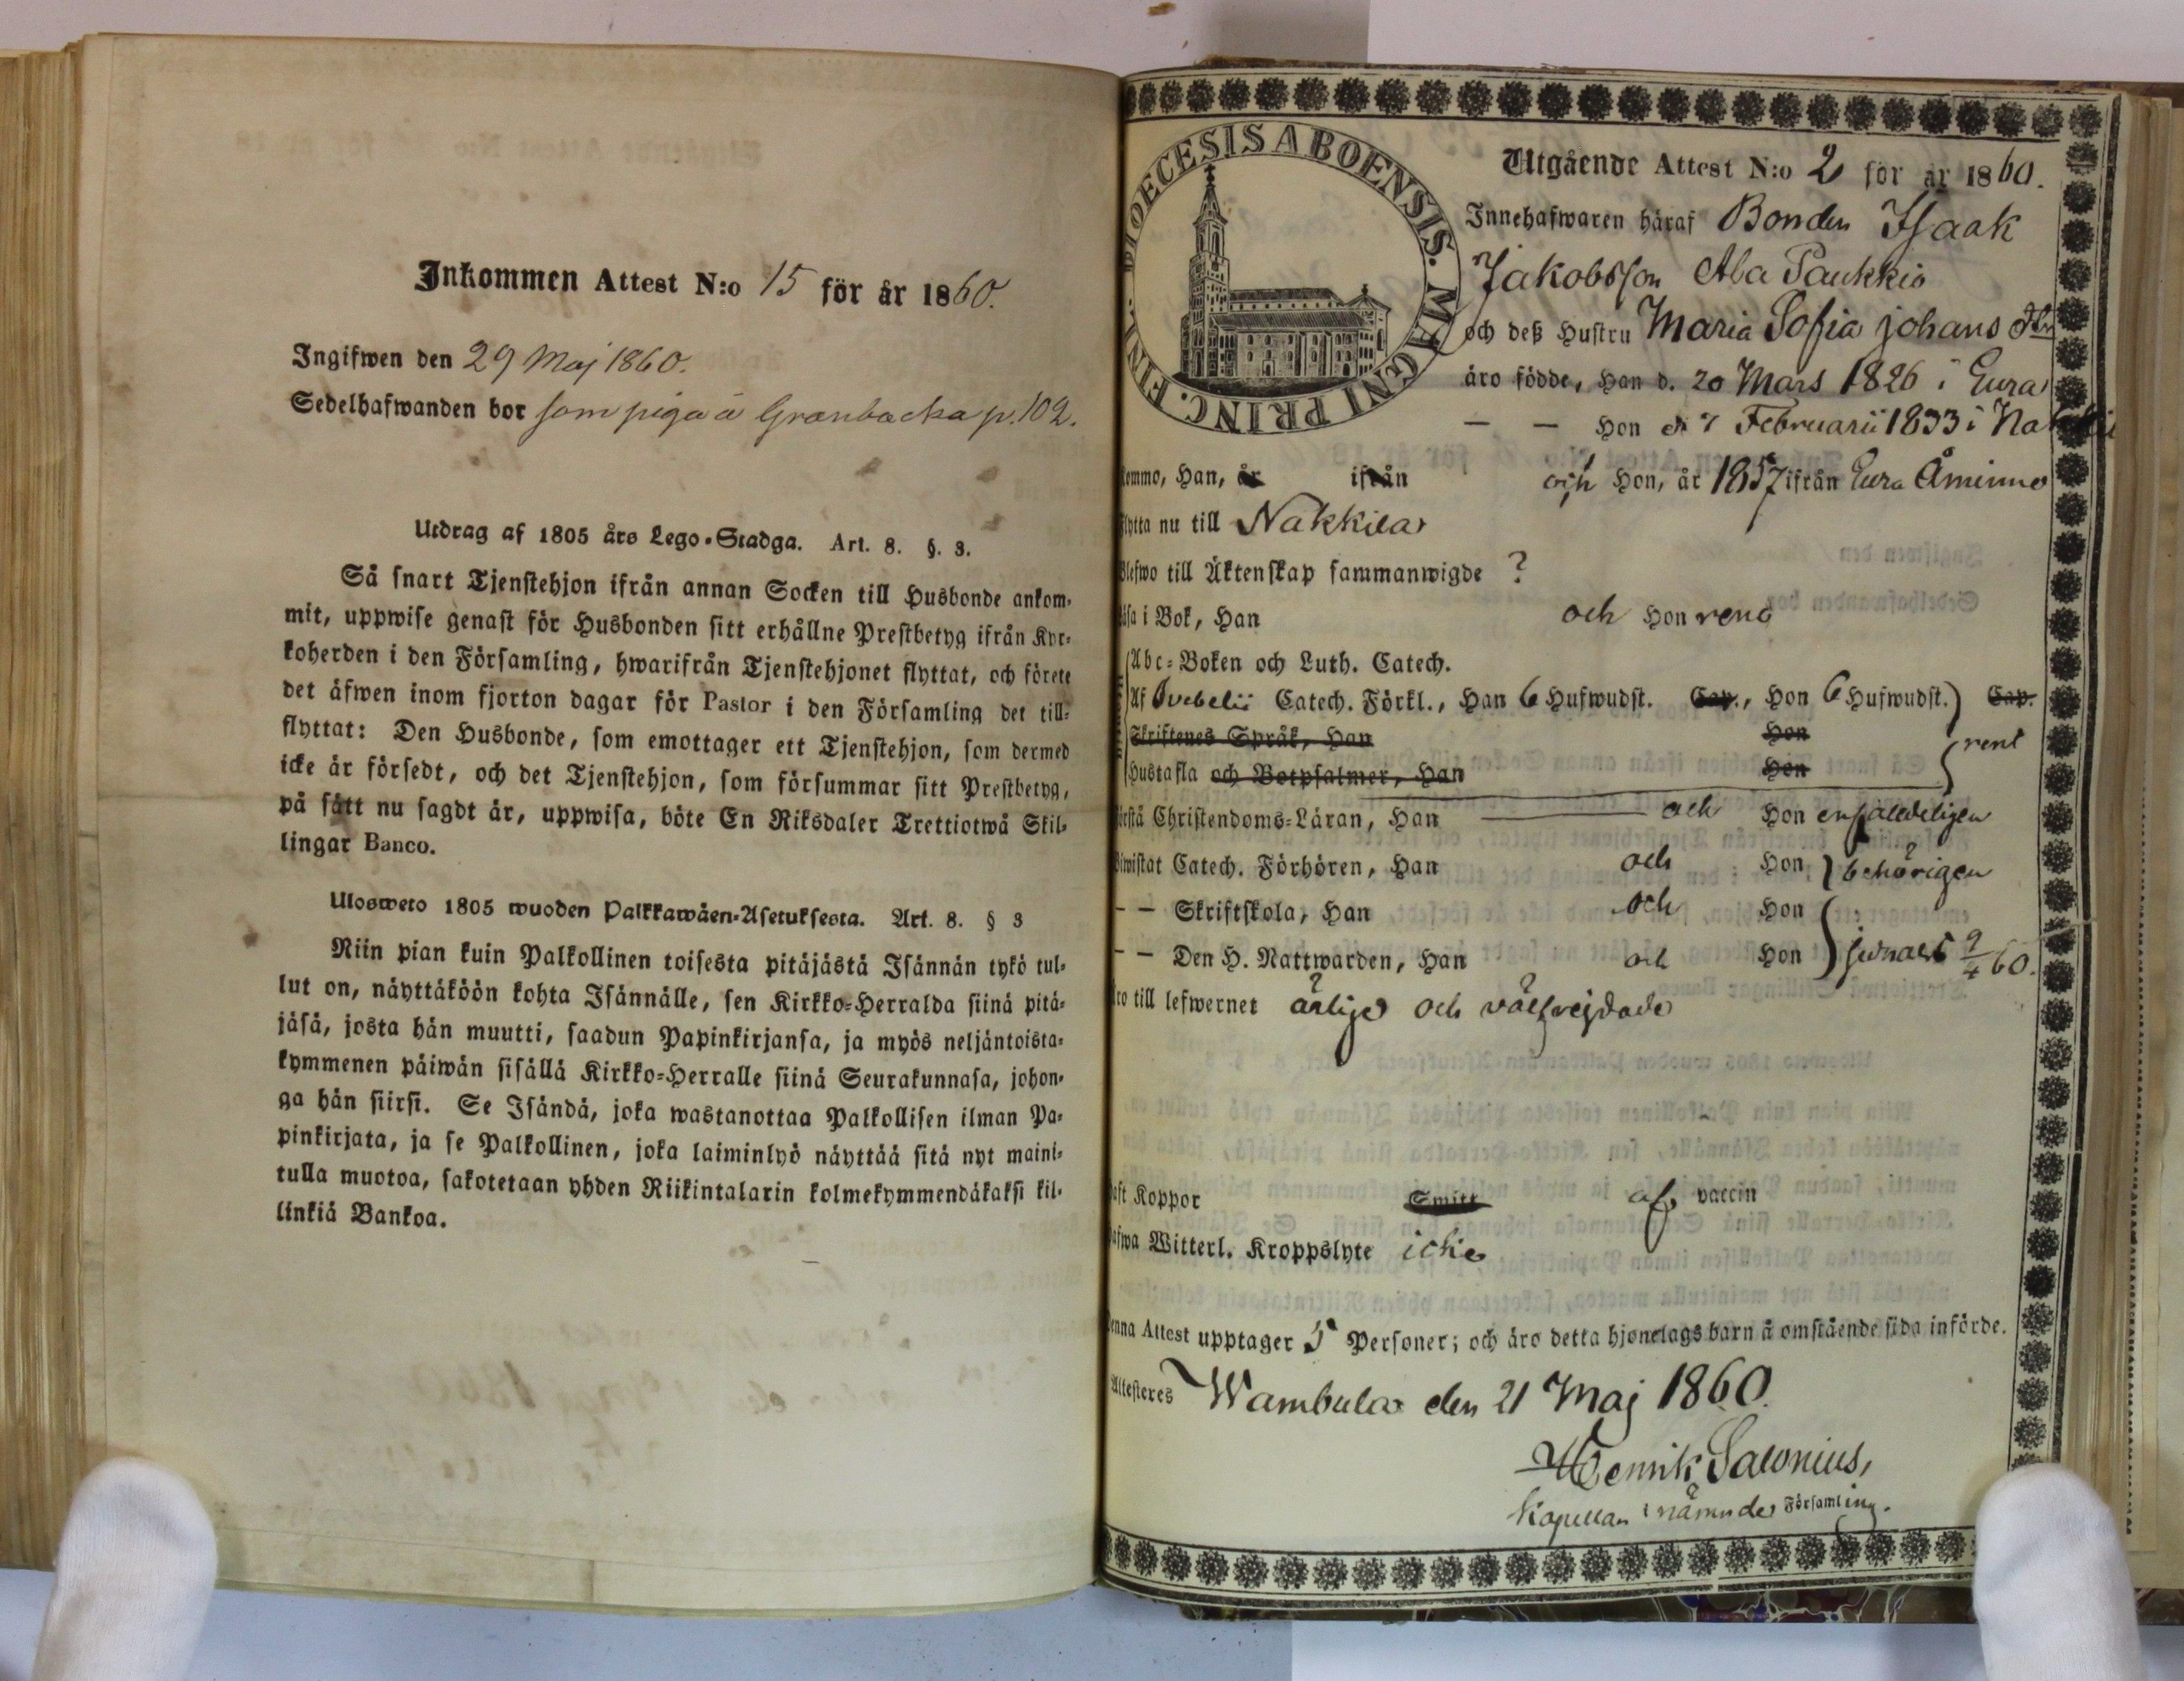 Inkommen Attest N:o 15 för år 1860.
Ingifwen den 29 Maj 1860.
Sedelhafwanden bor som piga å Granbacka p. 102.
Utdrag af 1805 års Lego-Stadga. Art. 8. §. 3.
Så snart Tjenstehjon ifrån annan Socken till Husbonde ankom-
mit, uppwise genast för Husbonden sitt erhållne Prestbetyg ifrån Kyr-
koherden i den Församling, hwarifrån Tjenstehjonet flyttat, och förete
det äfwen inom fjorton dagar för Pastor i den Församling det till-
flyttat: Den Husbonde, som emottager ett Tjenstehjon, som dermed
icke är försedt, och det Tjenstehjon, som försummar sitt Prestbetyg,
på sätt nu sagdt är, uppwisa, böte En Riksdaler Trettiotwå Skil-
lingar Banco.
Ulosweto 1805 wuoden Palkkawäen-Asetuksesta. Art. 8. § 3
Niin pian kuin Palkollinen toisesta pitäjästä Isännän tykö tul-
lut on, näyttäköön kohta Isännälle, sen Kirkko-Herralda siinä pitä-
jäsä, josta hän muutti, saadun Papinkirjansa, ja myös neljäntoista-
kymmenen päiwän sisällä Kirkko-Herralle siinä Seurakunnasa, johon-
ga hän siirsi. Se Isändä, joka wastanottaa Palkollisen ilman Pa-
pinkirjata, ja se Palkollinen, joka laiminlyö näyttää sitä nyt maini-
tulla muotoa, sakotetaan yhden Riikintalarin kolmekymmendäkaksi kil-
linkiä Bankoa.
DIOECESIS ABOENSIS. MAGNI PRINC. FINL.
Utgående Attest N:o 2 för år 1860.
Innehafwaren häraf Bonden Isaak
Jakobsson Ala Paukkio
och deß Hustru Maria Sofia Johans dtr
äro födde, Han d. 20 Mars 1826 i Eura
— — Hon d. 7 Februarii 1833 i
kommo, Han, år ifrån och Hon, år 1857 ifrån Eura Åminne
flytta nu till Nakkila
Blefwo till Äktenskap sammanwigde ?
läsa i Bok, Han och Hon rena
Abc-Boken och Luth. Catech.
Af Svebelii Catech. Förkl., Han 6 Hufwudst. Cap., Hon 6 Hufwudst. Cap.
Skriftenes Språk, Han Hon rent
Hustafla och Botpsalmer, Han Hon
förstå Christendoms-Läran, Han och Hon enfaldeligen
Biwistat Catech. Förhören, Han och Hon behörigen
— — Skriftskola, Han och Hon
— — Den H. Nattwarden, Han och Hon senast 9/4 60.
äro till lefwernet ärlige och välfrejdade
haft Koppor Smitt af vaccin
hafwa Witterl. Kroppslyte icke
Denna Attest upptager 5 Personer; och äro detta hjonelags barn å omstående sida införde.
Attesteres Wambula den 21 Maj 1860.
Henrik Salonius,
Kapellan i nämnde Församling.